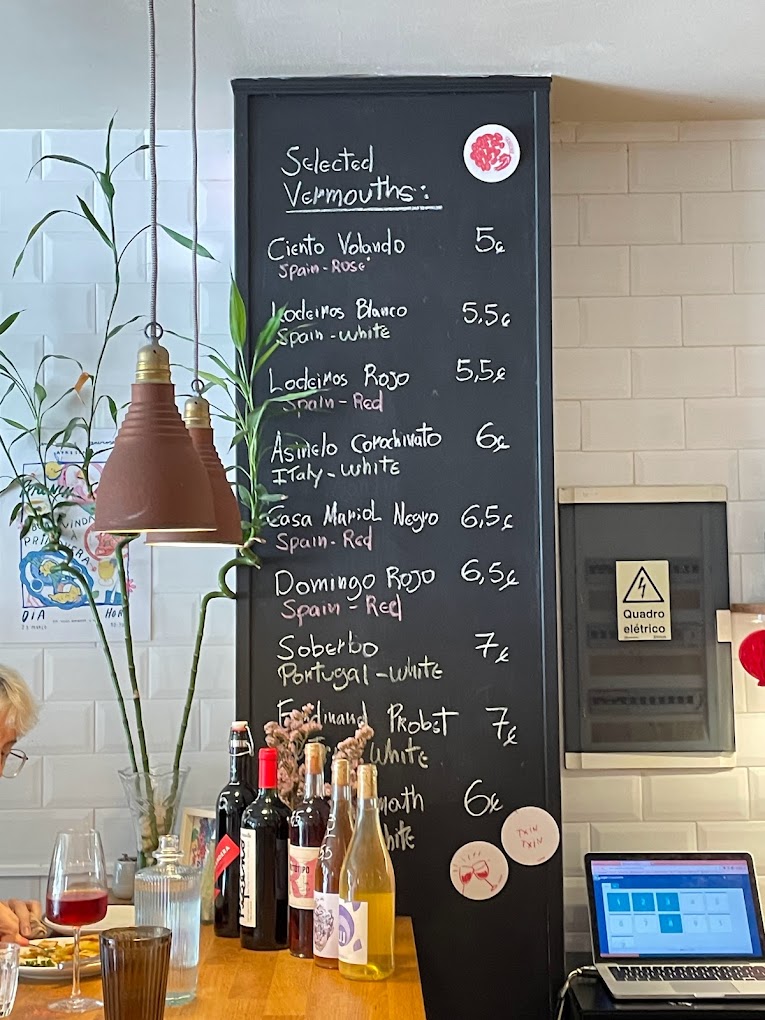 Selected
Vermouths:
Ciento Volando 5€
Spain - Rosé
Lodeiros Blanco 5,5€
Spain - White
Lodeiros Rojo 5,5€
Spain - Red
Asinelo Corochinato 6€
ITaly - White
Casa Mariol Negro 6,5€
Spain - Red
Domingo Rojo 6,5€
Spain - Red
Soberbo 7€
Portugal - White
Ferdinand Probst 7€
White
math 6€
hite
TXIN
TXIN
Quadro
elétrico
PRIMAVERA
DIA